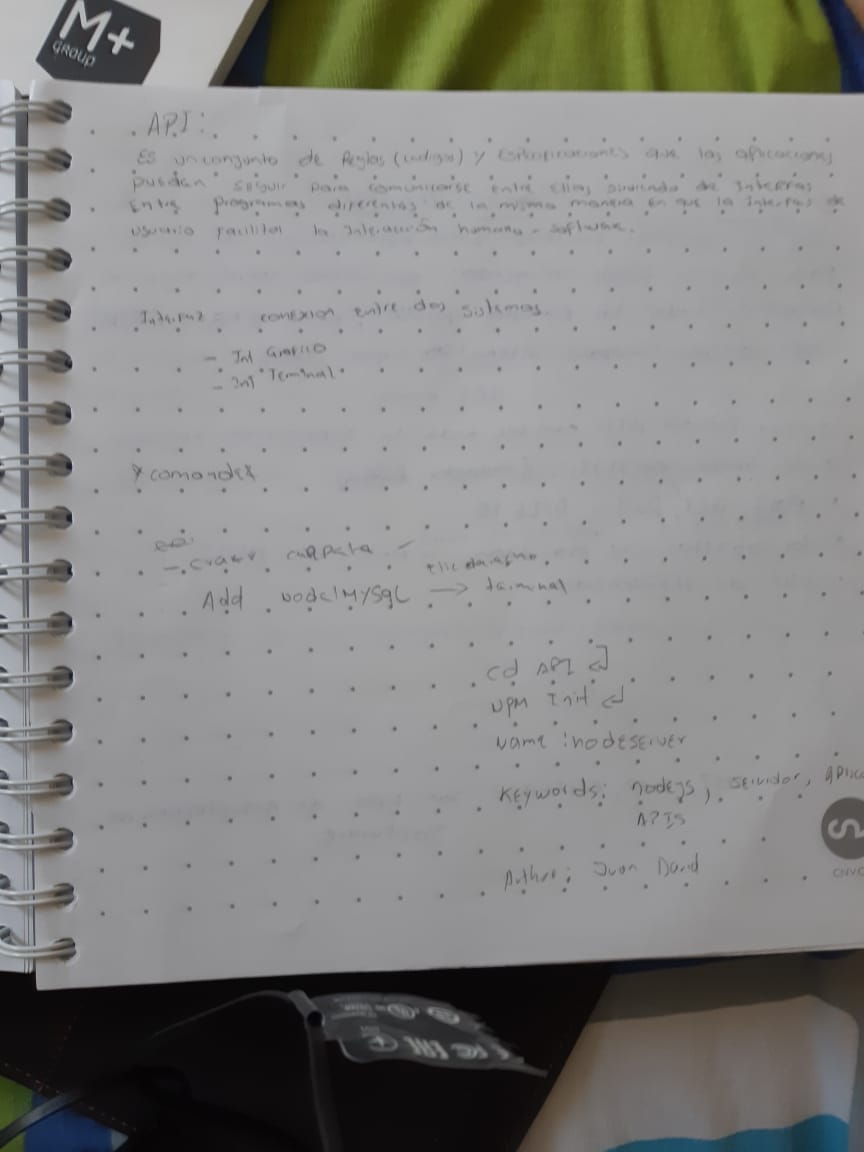 M+
GROUP
API:
Es un conjunto de Reglas (codigos) y Especificaciones que las aplicaciones
pueden seguir para comunicarse entre Ellas sirviendo de Interfas
Entre programas diferentes de la misma manera en que la Interfas de
usuario facilitar la Interacción humano - software.
Interfaz conexion entre dos sistemas
- Int Grafico
- Int Teminal
* comandos
- Crear carpeta
Clic derecho
Add Node/MYSQL → terminal
cd API
NPM Init
Name : nodeserver
Keywords: nodejs, servidor, aplica
APIS
Author: Juan David